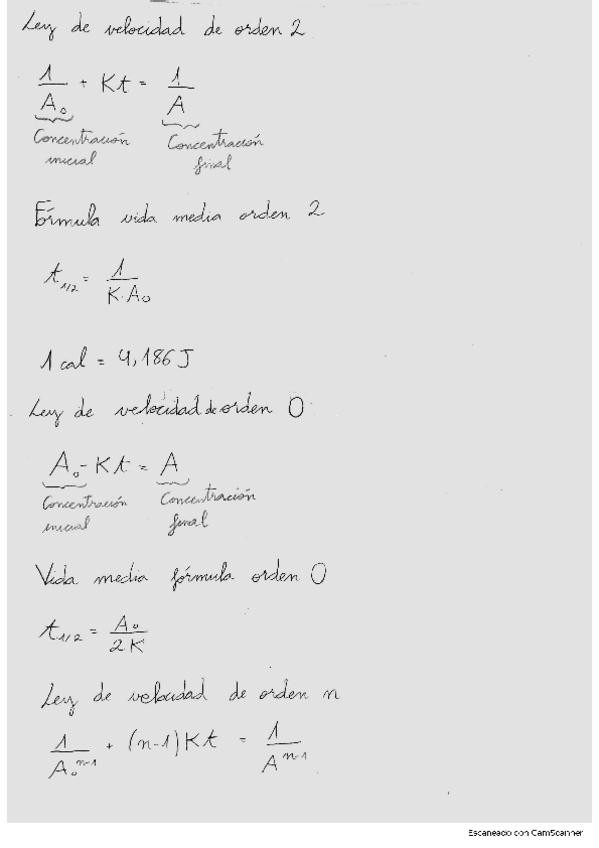 Ley de velocidad de orden 2
1/A₀ + Kt = 1/A
Concentración inicial
Concentración final
Fórmula vida media orden 2
t₁/₂ = 1/K·A₀
1 cal = 4,186 J
Ley de velocidad de orden 0
A₀ - Kt = A
Concentración inicial
Concentración final
Vida media fórmula orden 0
t₁/₂ = A₀/2K
Ley de velocidad de orden n
1/A₀ⁿ⁻¹ + (n-1)Kt = 1/Aⁿ⁻¹
Escaneado con CamScanner